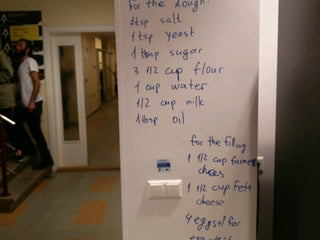 for the dough:
1tsp salt
1 tsp yeast
1 tbsp sugar
3 1/2 cup flour
1 cup water
1/2 cup milk
1 tbsp oil
for the filling
1 1/2 cup farmers
cheese
1 1/2 cup Feta
cheese
4 eggs+1 for